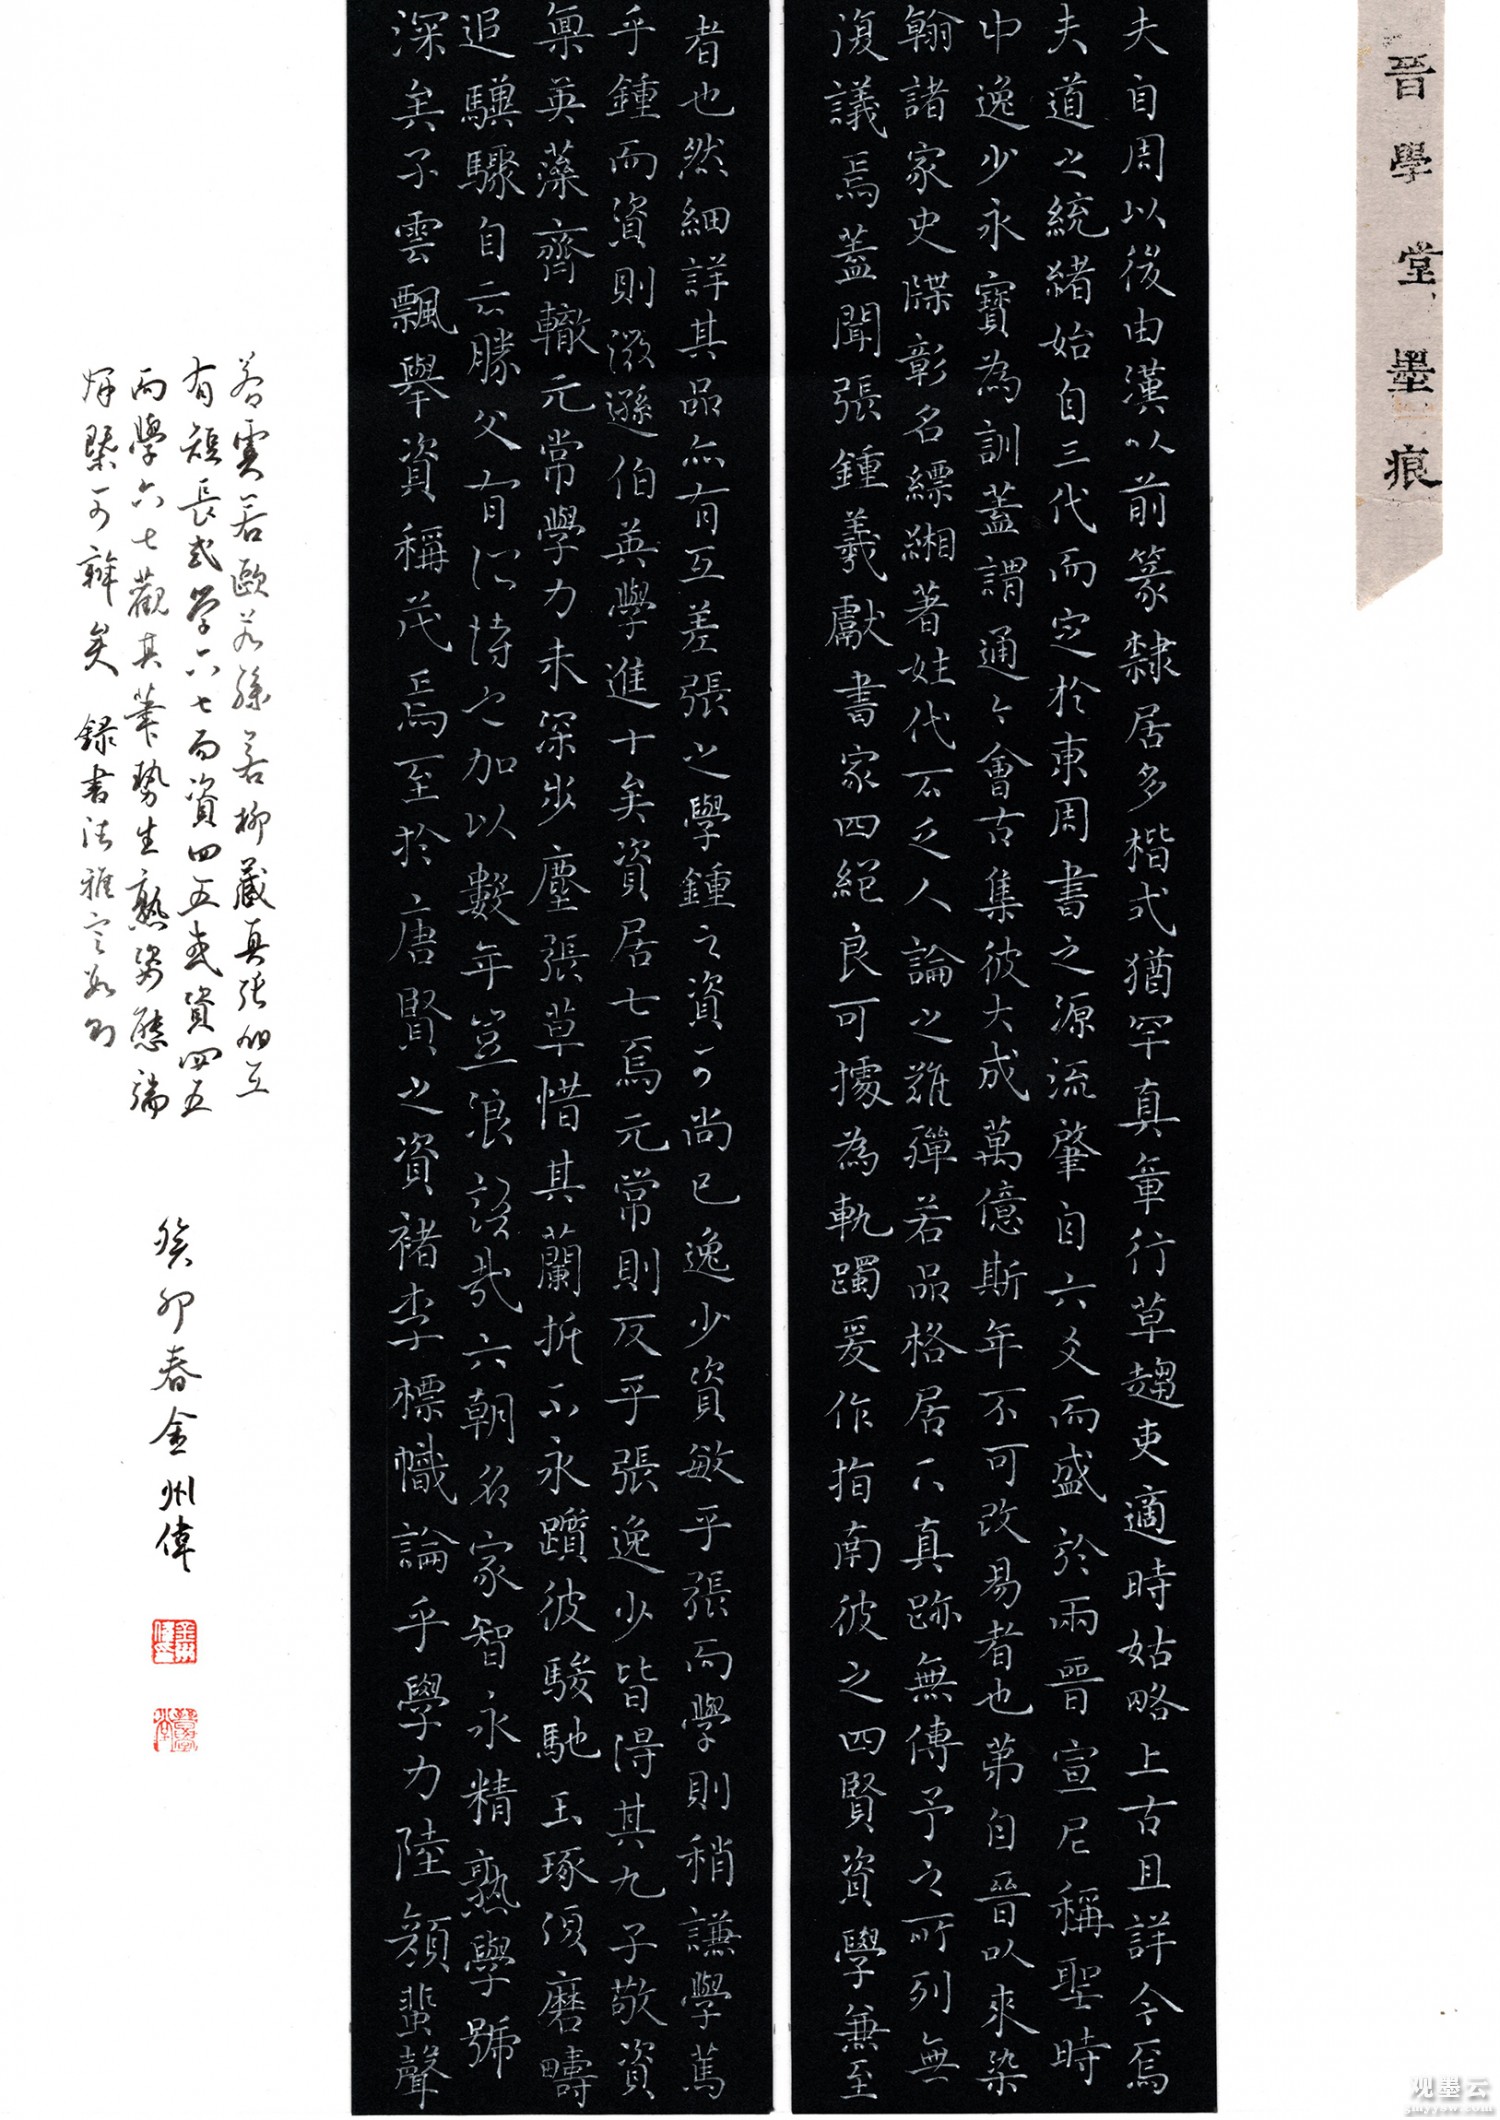 晉學堂墨痕
夫自周以後由漢以前篆隸居多楷式猶罕真章行草趨吏適時姑略上古且詳今焉
夫道之統緒始自三代而定於東周書之源流肇自六爻而盛於兩晉宣尼稱聖時
中逸少永寶為訓蓋謂通今會古集彼大成萬億斯年不可改易者也第自晉以來染
翰諸家史牒彰名縹緗著姓代不乏人論之難殫若品格居下真跡無傳予之所列無
復議焉蓋聞張鍾羲獻書家四絕良可據為軌躅爰作指南彼之四賢資學兼至
者也然細詳其品亦有互差張之學鍾之資可尚已逸少資敏乎張而學則稍謙學篤
乎鍾而資則微遜伯英學進十矣資居七焉元常則反乎張逸少皆得其九子敬資
稟英藻齊轍元常學力未深步塵張草惜其蘭折不永躓彼駿馳玉琢須磨疇
追驥驟自云勝父有所恃也加以數年豈浪語哉六朝名家智永精熟學號
深矣子雲飄舉資稱茂焉至於唐賢之資褚李標幟論乎學力陸顏蜚聲
若虞若歐若孫若柳藏真張旭互
有短長或學六七而資四五或資四五
而學六七觀其筆勢生熟姿態端
妍槩可辨矣 錄書法雅言數則
癸卯春金州偉
观墨云
gmyyow.com